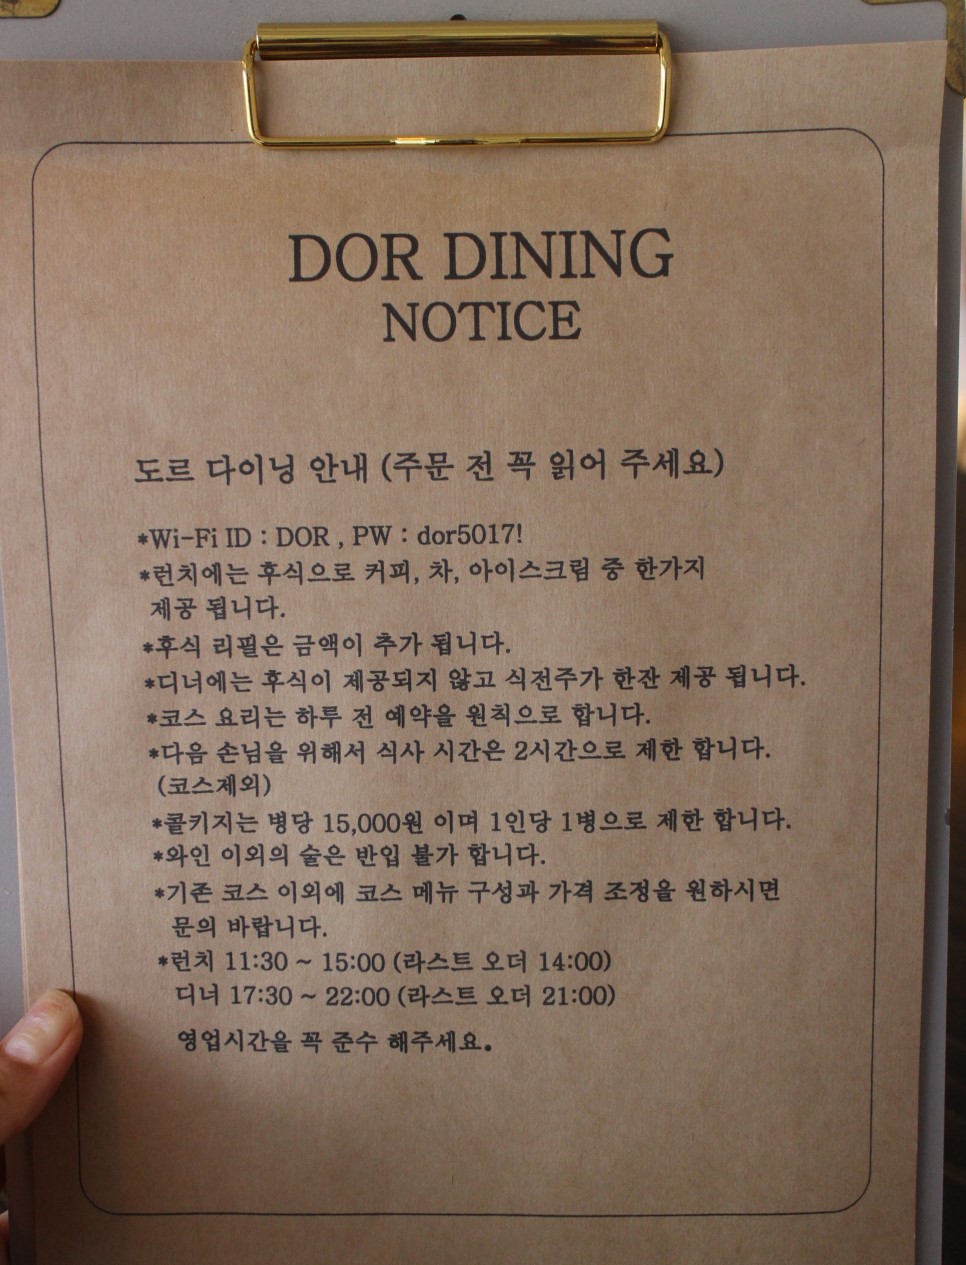 DOR DINING
NOTICE
도르 다이닝 안내 (주문 전 꼭 읽어 주세요)
*Wi-Fi ID : DOR , PW : dor5017!
*런치에는 후식으로 커피, 차, 아이스크림 중 한가지
제공 됩니다.
*후식 리필은 금액이 추가 됩니다.
*디너에는 후식이 제공되지 않고 식전주가 한잔 제공 됩니다.
*코스 요리는 하루 전 예약을 원칙으로 합니다.
*다음 손님을 위해서 식사 시간은 2시간으로 제한 합니다.
(코스제외)
*콜키지는 병당 15,000원 이며 1인당 1병으로 제한 합니다.
*와인 이외의 술은 반입 불가 합니다.
*기존 코스 이외에 코스 메뉴 구성과 가격 조정을 원하시면
문의 바랍니다.
*런치 11:30 ~ 15:00 (라스트 오더 14:00)
디너 17:30 ~ 22:00 (라스트 오더 21:00)
영업시간을 꼭 준수 해주세요.